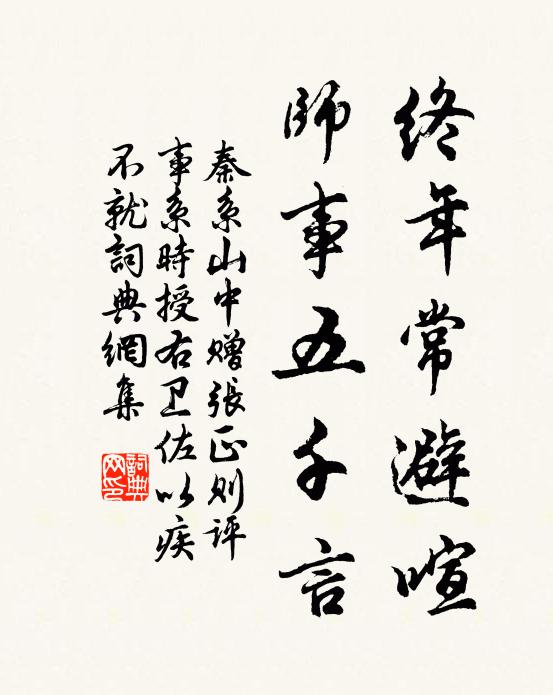 終年常避喧
師事五千言
秦系山中赠張正则評
事系時授右卫佐以疾
不就詞典網集
詞典网印